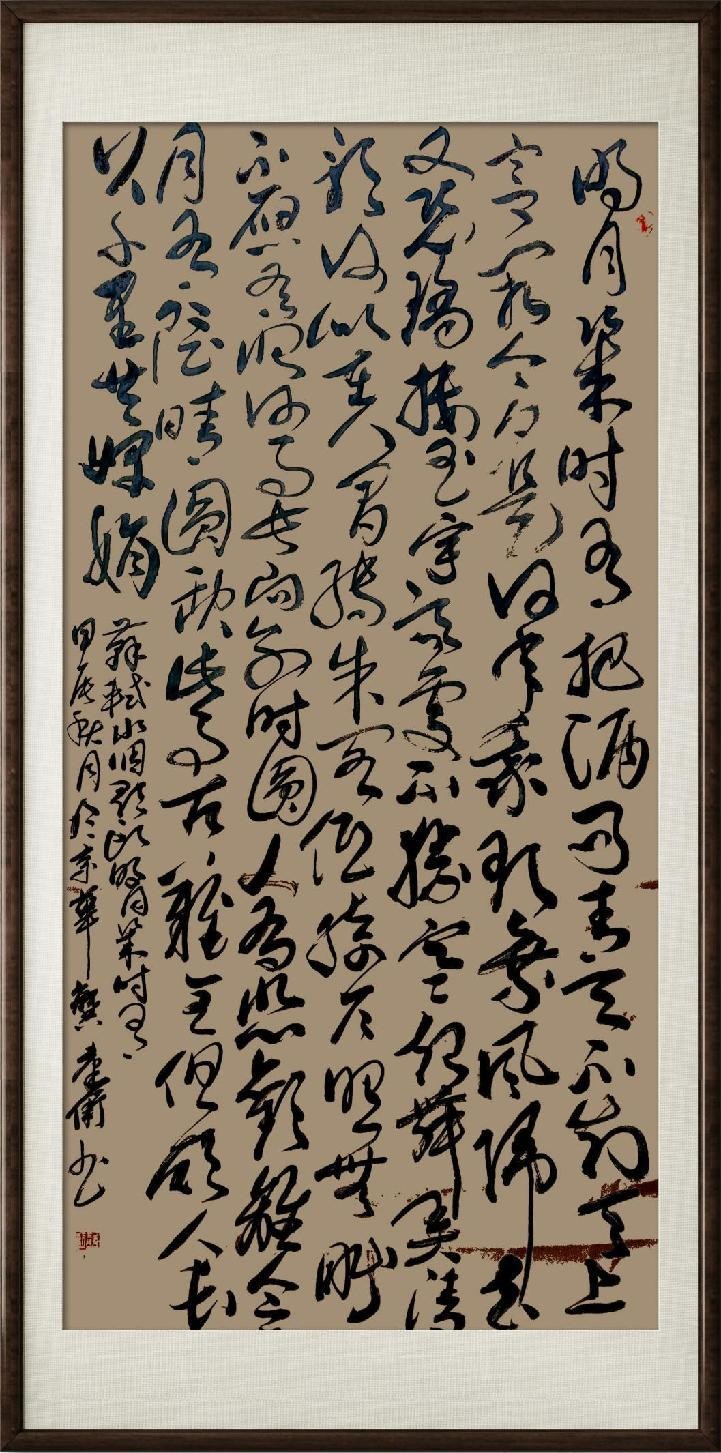 明月幾时有把酒问青天不知天上
宫阙今夕是何年我欲乘风归去
又恐瓊楼玉宇高處不勝寒起舞弄清
影何似在人间转朱阁低绮户照無眠
不應有恨何事长向别时圆人有悲歡離合
月有陰晴圆缺此事古難全但願人长
久千里共婵娟
蘇軾水调歌头明月幾时有
甲辰秋月於京華龔书